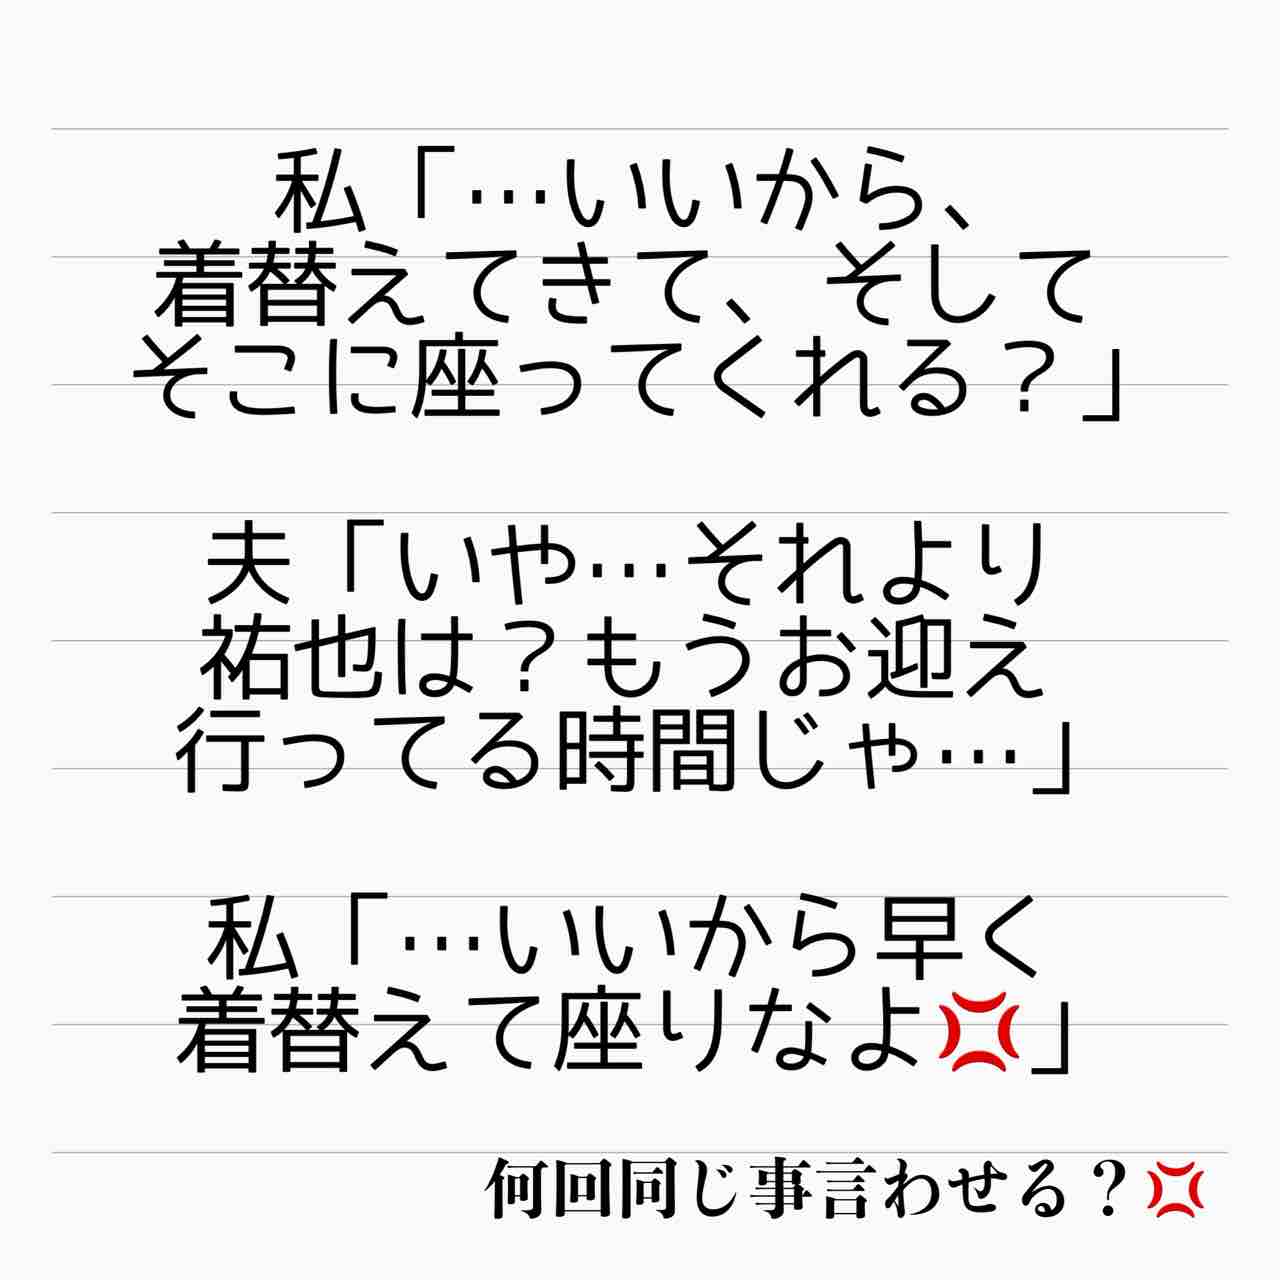 私「…いいから、
着替えてきて、そして
そこに座ってくれる？」
夫「いや…それより
祐也は？もうお迎え
行ってる時間じゃ…」
私「…いいから早く
着替えて座りなよ💢」
何回同じ事言わせる？💢